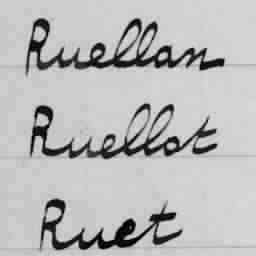 Ruellan
Ruellot
Ruet